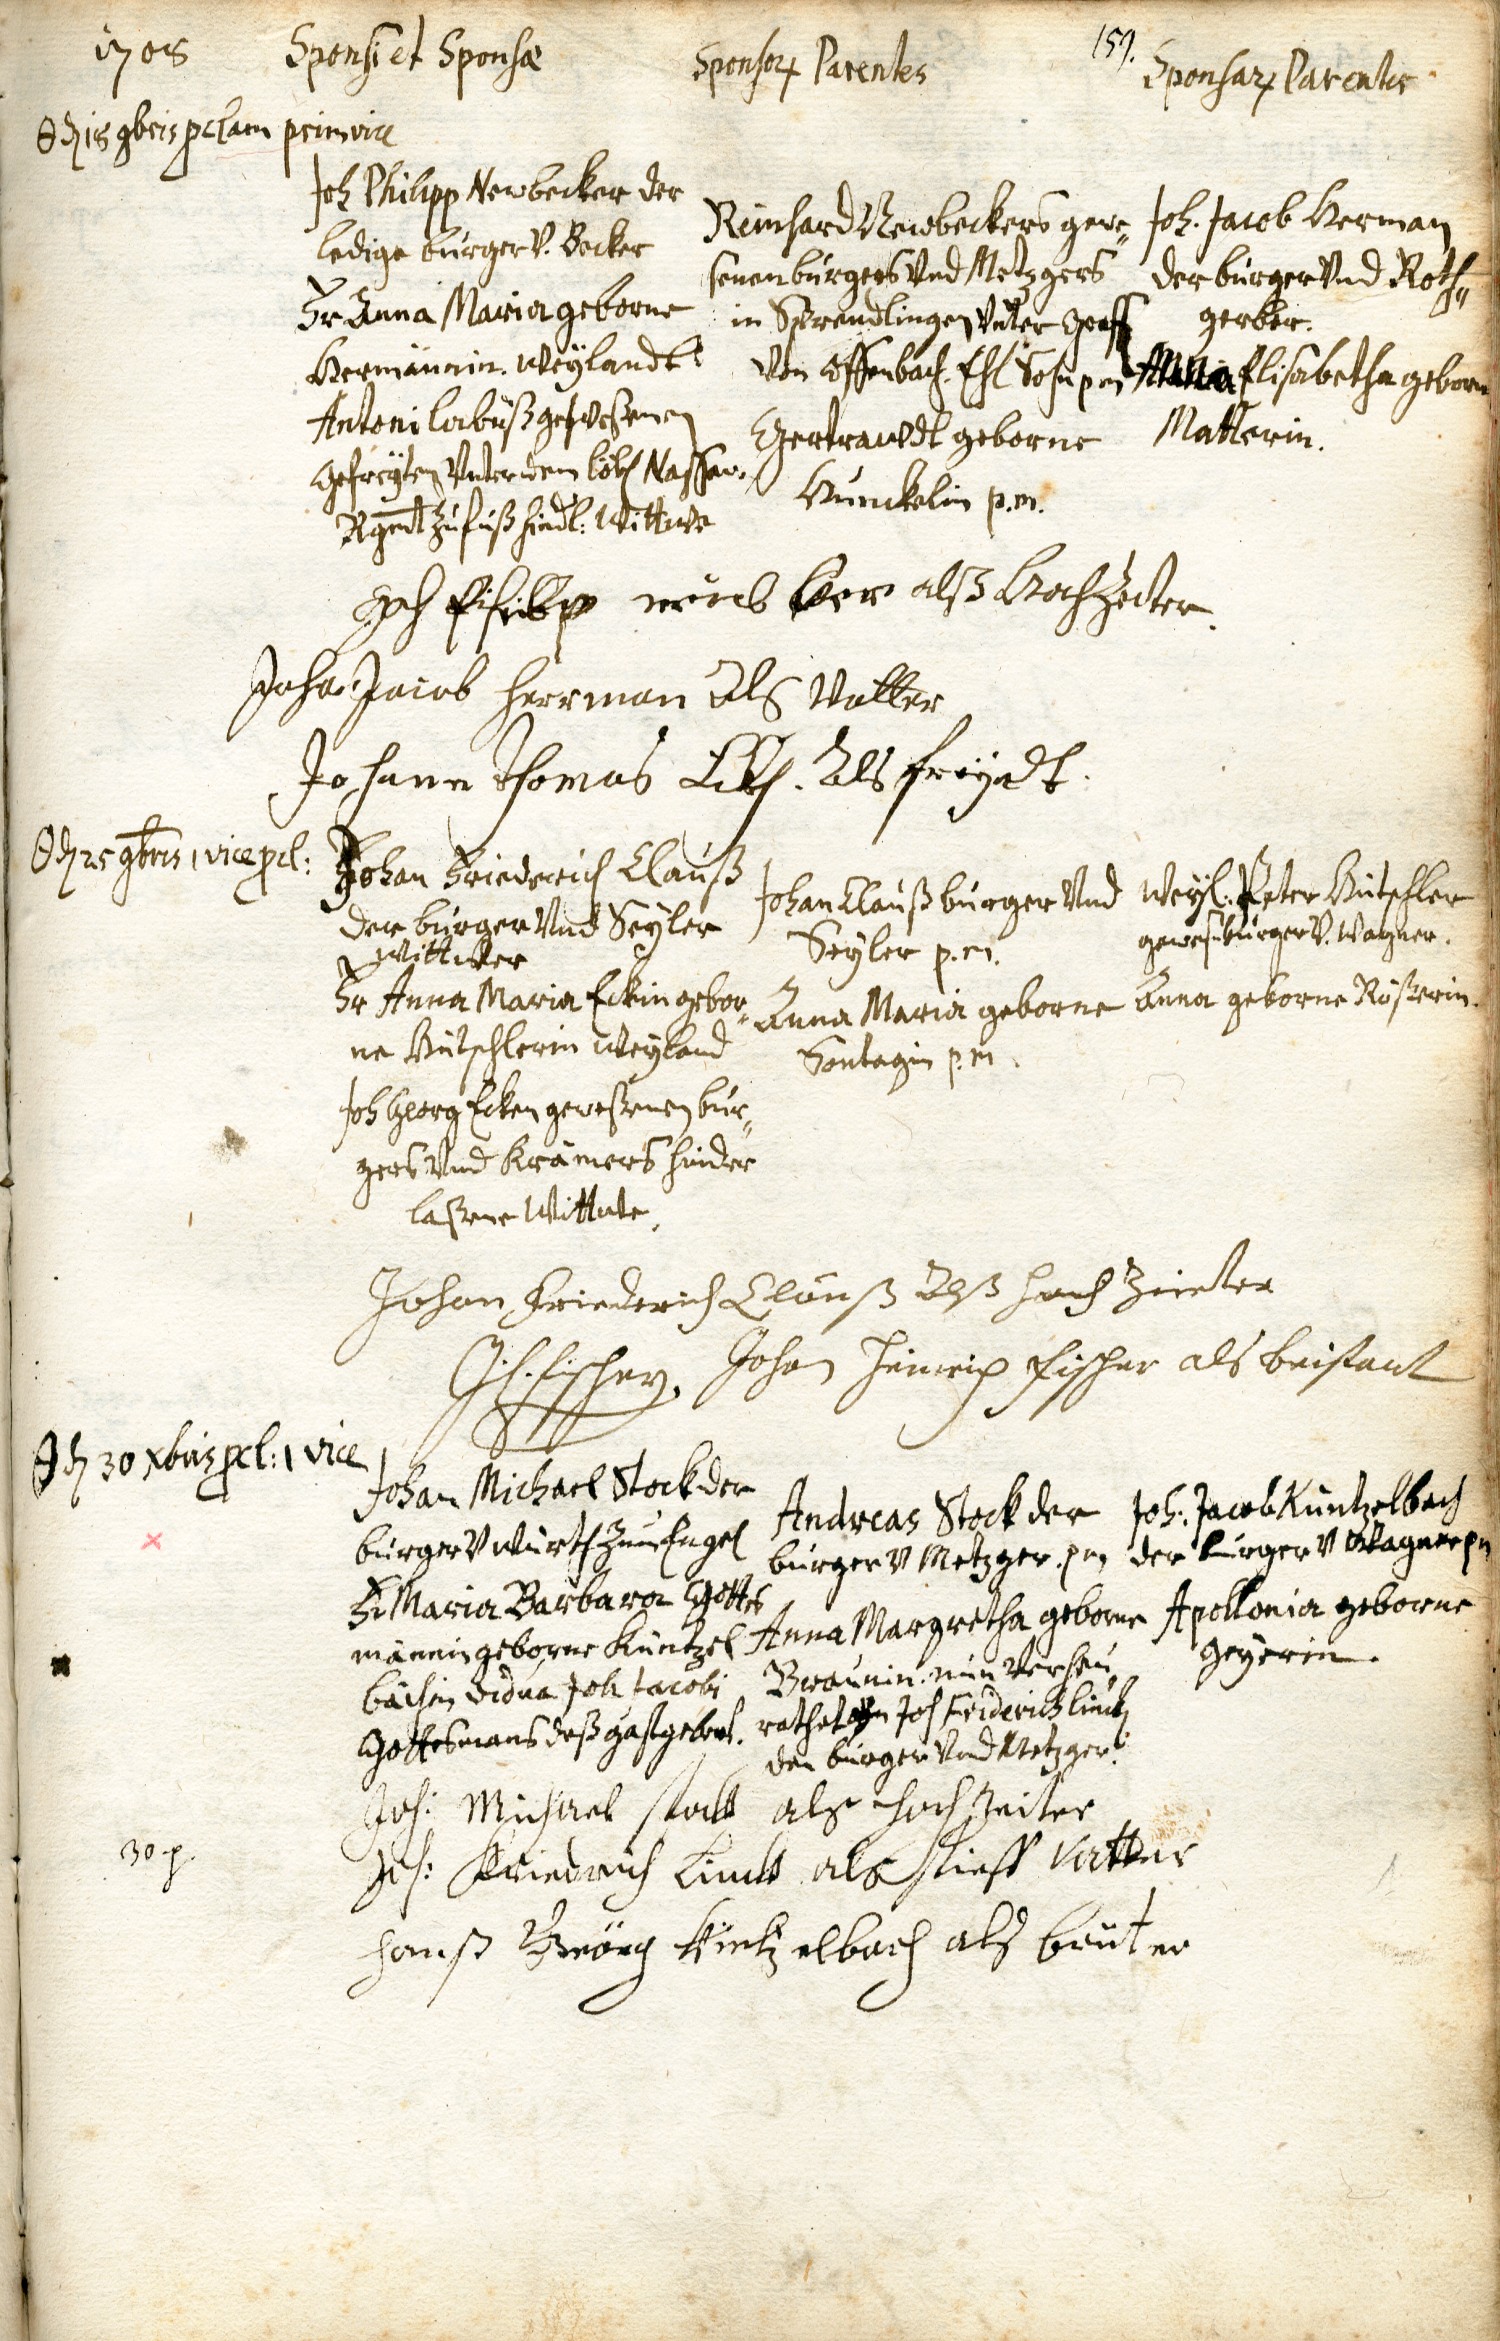 1708 Sponsi et Sponsæ Sponsor. Parentes 159. Sponsar. Parentes
18 9bris proclam prim vice
Joh Philipp Newbecker der
ledige burger V. Becker
Fr Anna Maria geborne
Hermännin. Weylandt
Antoni gewesenen
Gefreyten Unter dem löbl Nassaw.
Rgmt zu fuß hindl: Wittwe
Reinhard Newbeckers gewe=
senen burgers Vnd Metzgers
in Sprendlingen Unter Graff
Von Offenbach. Ehl Sohn pm
Gertraudt geborne
Hunckelin p.m.
Joh. Jacob Herman
der burger Vnd Roth=
gerber.
Maria Elisabetha geborn
Matterin.
Joh als Hochzeiter.
Johan Jacob Herrman Als Vatter
Johann Thomas Als freyndt.
25 9bris 1 vice pcl:
Johan Friederich Clauß
der burger Vnd Seyler
Wittwer
Fr Anna Maria Eckin gebor=
ne Hütschlerin Weyland
Joh Georg Ecken geweßenen bur=
gers Vnd Krämers hinder
laßene Wittwe.
Johan Clauß burger Vnd
Seyler p.m.
Anna Maria geborne
Sontagin p.m.
Weyl. Peter Hütschler
gewes. burger V. Wagner.
Anna geborne Rößerin.
Johan Friederich Clauß Alß Hochzeiter
Fischer. Johan Heinrich Fischer als beistant
30 Xbris pcl: 1 vice
Johan Michael Stock der
burger V Würth zum Engel
Fr Maria Barbara Gottes
männin geborne Küntzel
bächin vidua Joh Jacobi
Gottesmans deß gastgebers.
Andreas Stock der
burger V Metzger. pm
Anna Margretha geborne
Braunin. nun Verheu
rathet an Joh Friderich Linck
den burger Vnd Metzger.
Joh: Jacob Küntzelbach
der burger V Wagner pm
Apollonia geborne
Geyerin.
Joh: Michael stock als Hochzeiter
30 p.
Joh: Friederich Linck als stieff Vatter
Hanß Geörg Kintzelbach als bruter